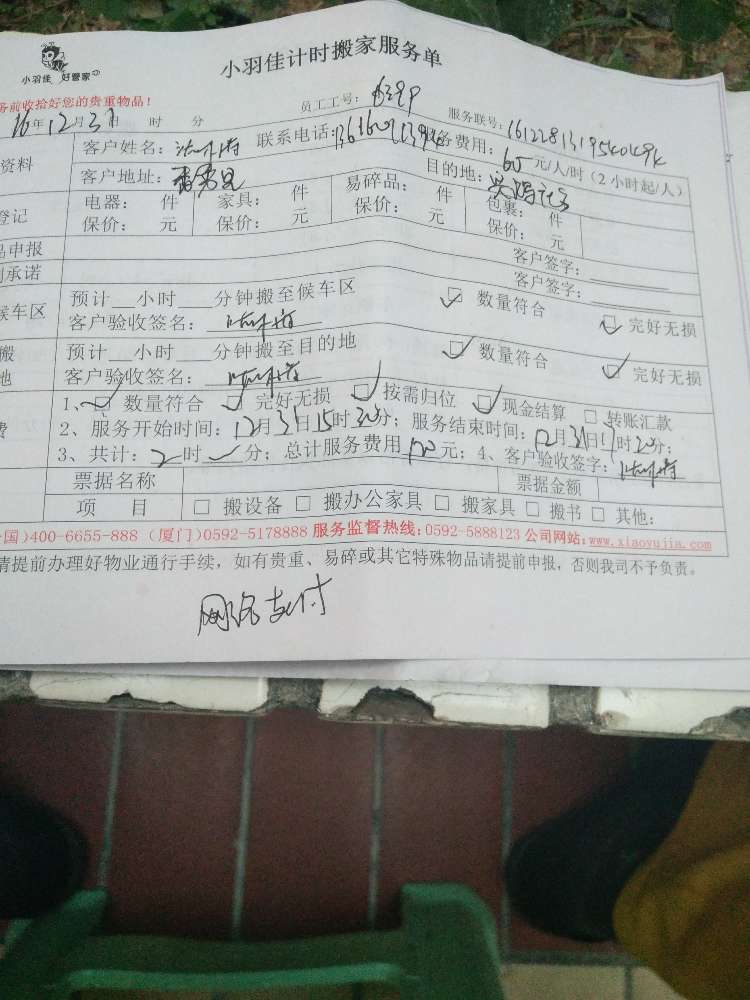 小羽佳计时搬家服务单
小羽佳 好管家
务前收拾好您的贵重物品！
员工工号：
服务联号：
16年12月31日 时 分
资料
客户姓名： 联系电话： 服务费用：60元/人/时（2小时起/人）
客户地址： 目的地：
登记
电器： 件 家具： 件 易碎品： 件 包裹： 件
保价： 元 保价： 元 保价： 元 保价： 元
品申报
客户签字：
承诺
客户签字：
候车区
预计__小时___分钟搬至候车区 ☑ 数量符合 ☑ 完好无损
客户验收签名：
搬
地
预计__小时___分钟搬至目的地 ☑ 数量符合 ☑ 完好无损
客户验收签名：
费
1、☑ 数量符合 ☑ 完好无损 ☑ 按需归位 ☑ 现金结算 □ 转账汇款
2、服务开始时间：12月31日15时30分；服务结束时间：12月31日17时30分；
3、共计：2时 分；总计服务费用 元；4、客户验收签字：
票据名称 票据金额
项 目 □ 搬设备 □ 搬办公家具 □ 搬家具 □ 搬书 □ 其他：
国）400-6655-888（厦门）0592-5178888 服务监督热线：0592-5888123 公司网站：www.xiaoyujia.com
请提前办理好物业通行手续，如有贵重、易碎或其它特殊物品请提前申报，否则我司不予负责。
网络支付